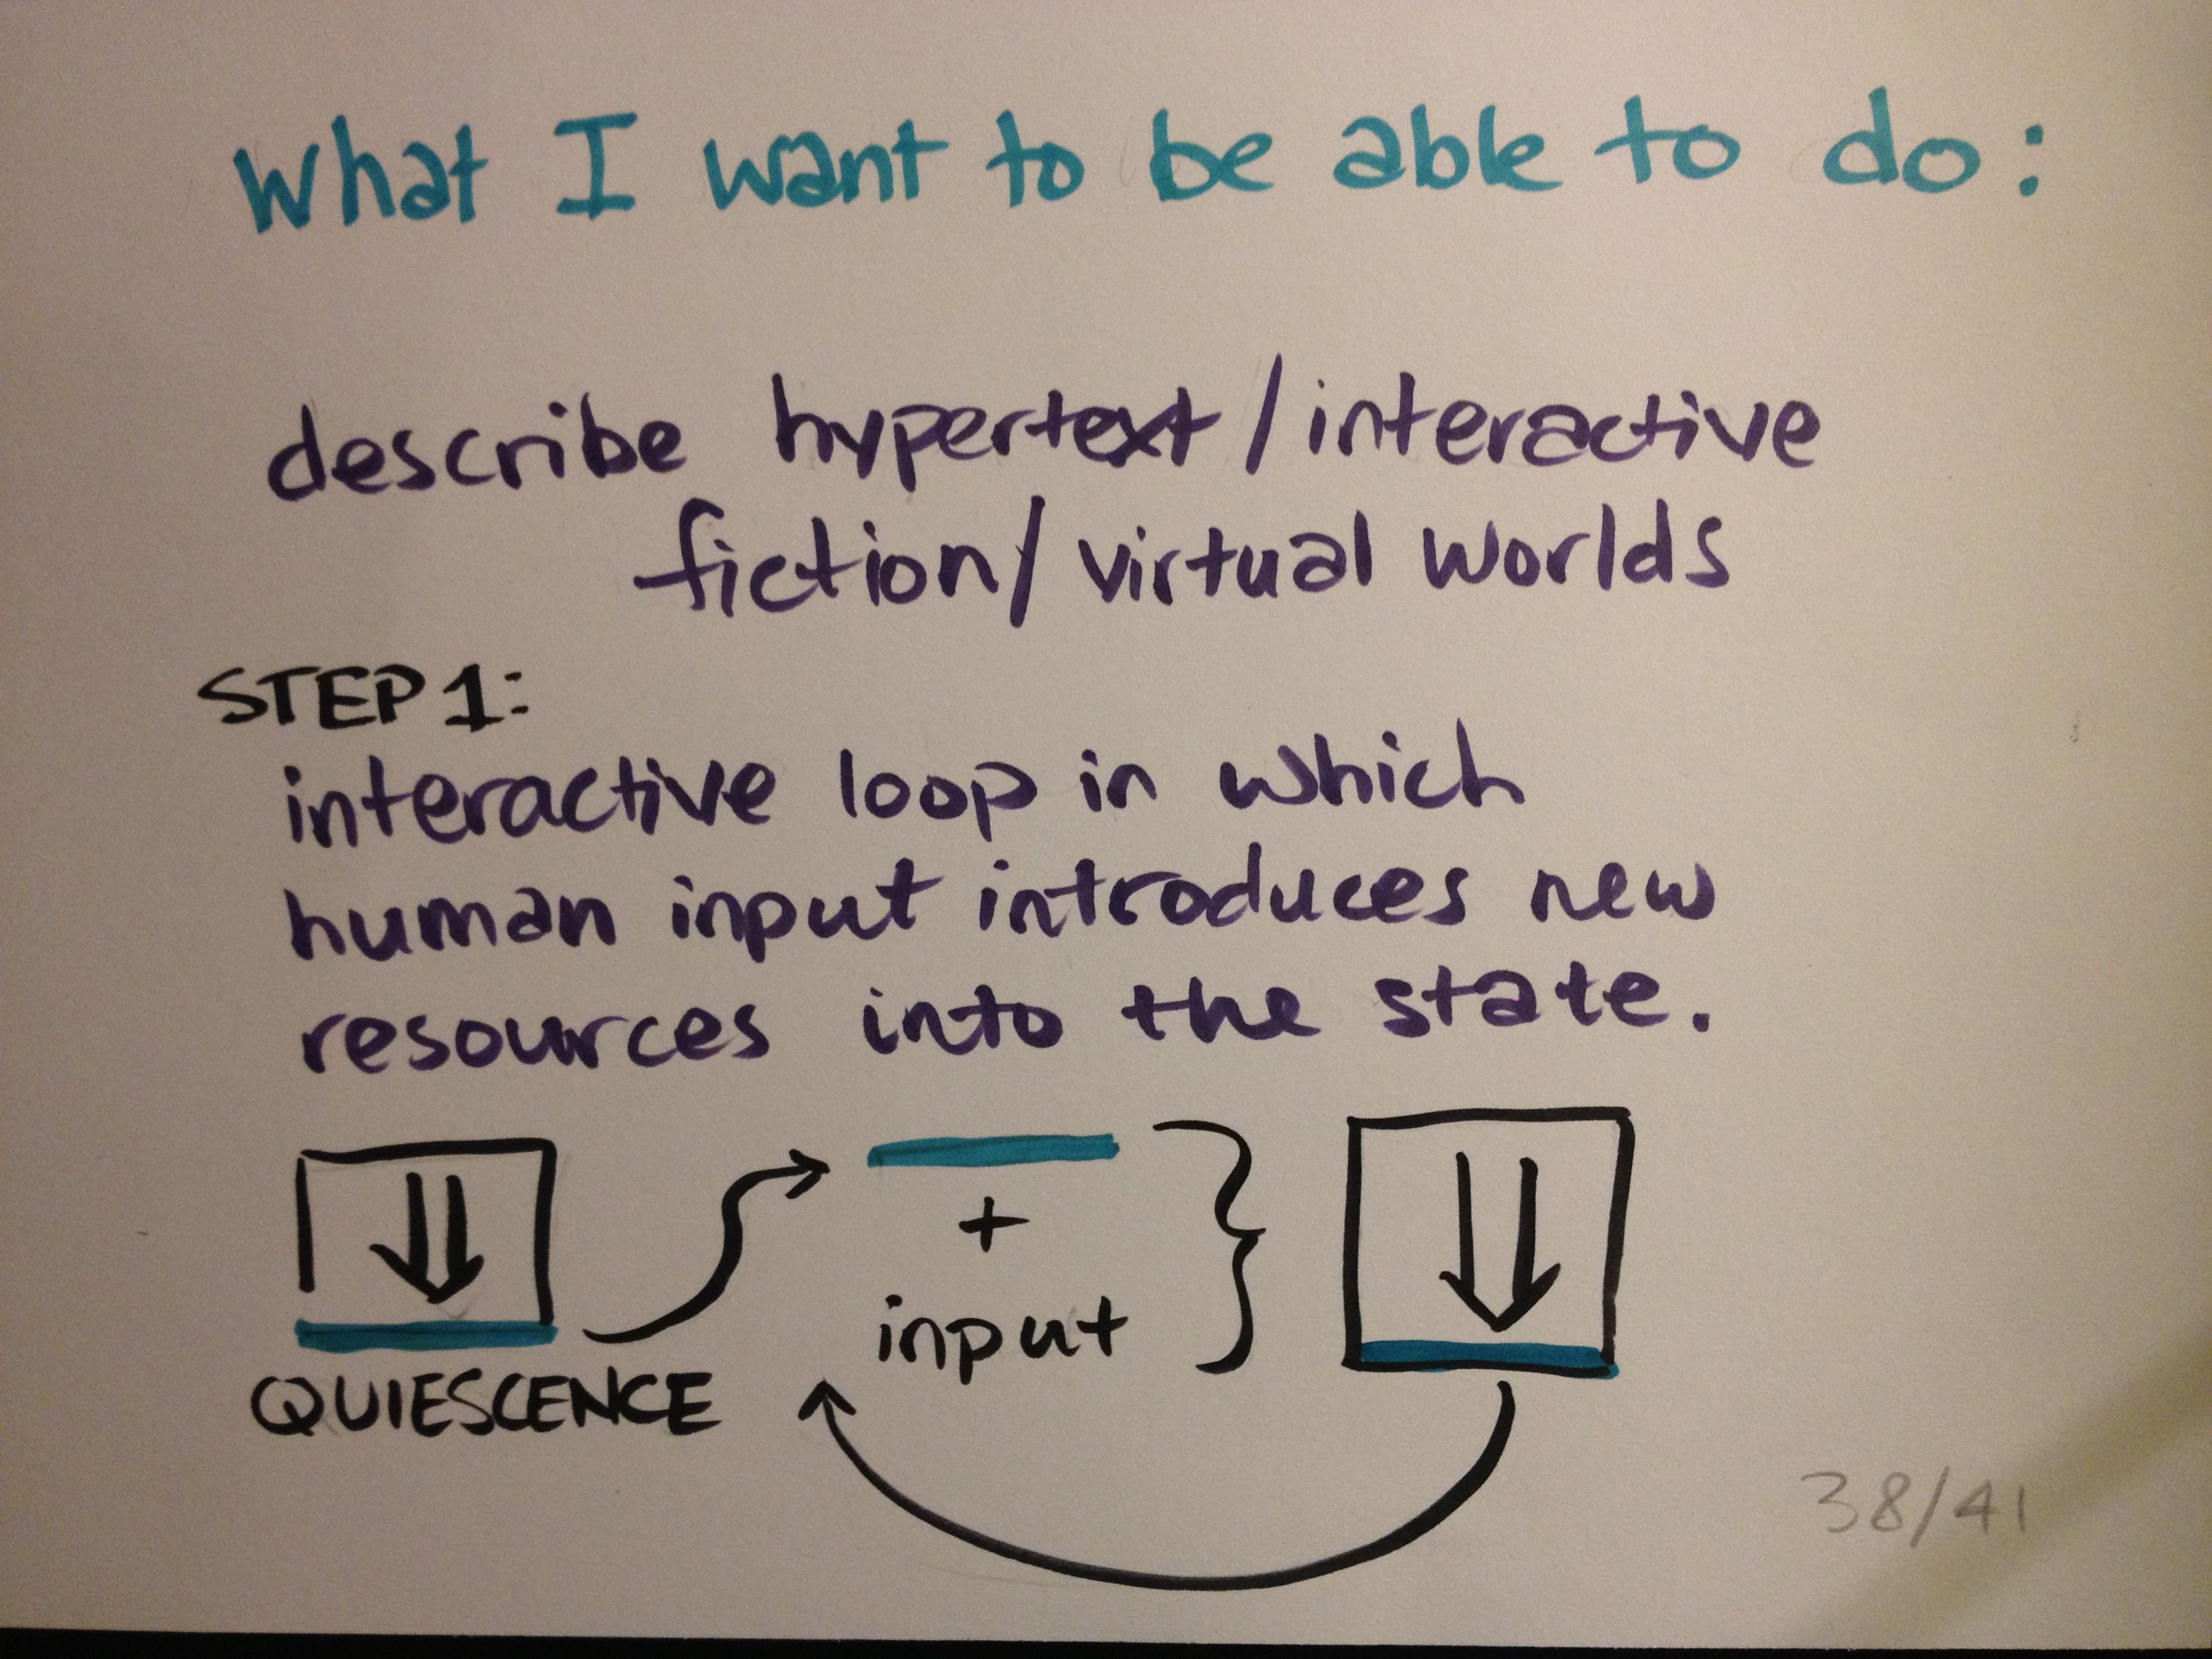 What I want to be able to do:
describe hypertext/interactive
fiction/virtual worlds
STEP 1:
interactive loop in which
human input introduces new
resources into the state.
+
input
QUIESCENCE
38/41